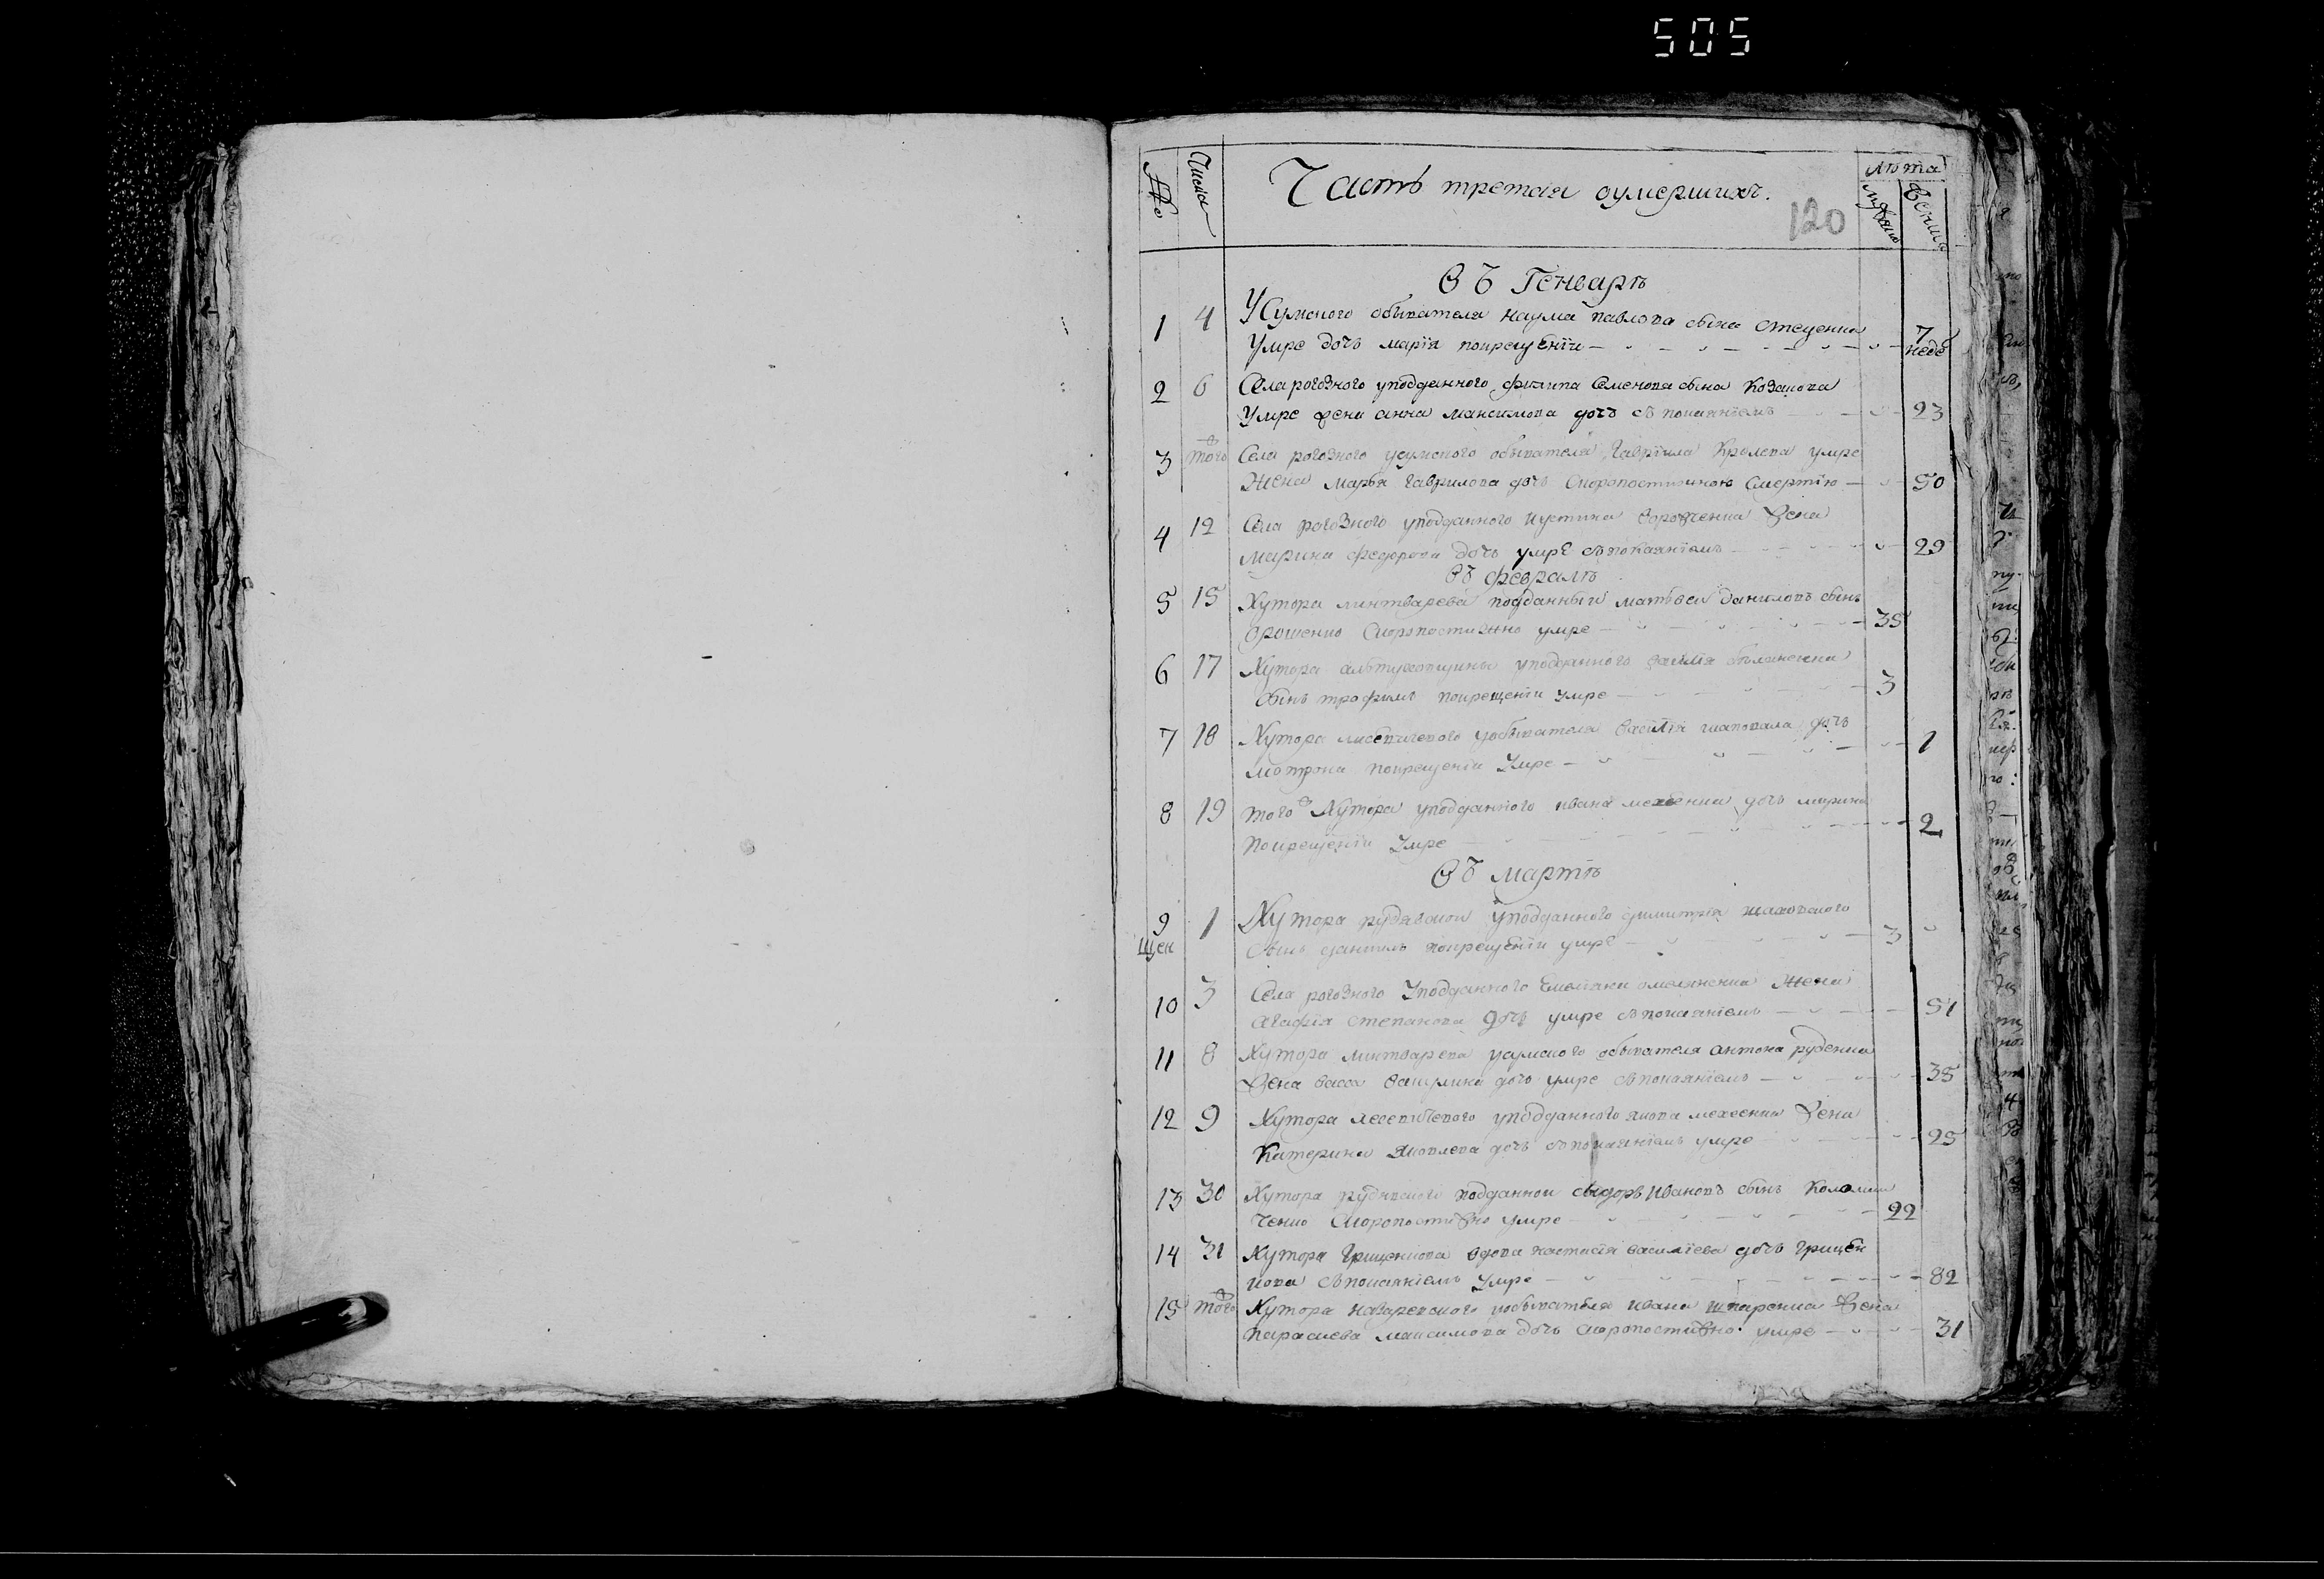 505
№
Числа
Часть третая оумершихъ.
Лѣта
Мужеска
Женска
120
Въ Генварѣ
1 4 У Сумского обывателя наума павлова сына стеценка
Умре дочь марія покрещеніи 7 неде
2 6 Села рогозного уподданного филипа Семенова сына Козакова
Умре жена анна максимова дочь съ покаяніемъ 23
3 тогож Села рогозного усумского обывателя Гавріила Кролева умре
Жена Марья Гаврилова дочь Скоропостижною Смертію 50
4 12 Села рогозного уподданного иустина жена
Марина федорова дочь умре съпокаяніемъ 29
Въ февралѣ
5 15 Хутора линтварева подданный матвей даниловъ сынъ
Ярошенко Скоропостижно умре 35
6 17 Хутора уподданного василія
Сынъ трофимъ покрещеніи умре 3
7 18 Хутора лисевицкого уобывателя василія шаповала дочь
мотрона покрещеніи Умре 1
8 19 того ж Хутора уподданного ивана мехеенка дочь марина
покрещеніи Умре 2
Въ мартѣ
9 1 Хутора уподданного димитрія
щен
Сынъ даніилъ покрещеніи умре 3
10 3 Села рогозного Уподданного Емелияна омеляненка Жена
Агафія степанова дочь умре съпокаяніемъ 51
11 8 Хутора линтварева усумского обывателя антона руденка
Жена васса дочь умре съпокаяніемъ 35
12 9 Хутора уподданного якова мехеенка Жена
Катерина Яковлева дочь съпокаяніемъ умре 25
13 30 Хутора подданной сидоръ ивановъ сынъ
ченко Скоропостижно умре 22
14 31 Хутора Грищенкова вдова настасія василіева дочь Грищен
кова съпокаяніемъ Умре 82
15 тогож Хутора назаревского уобывателя ивана шпаренка Жена
Параскева максимова дочь скоропостижно умре 31